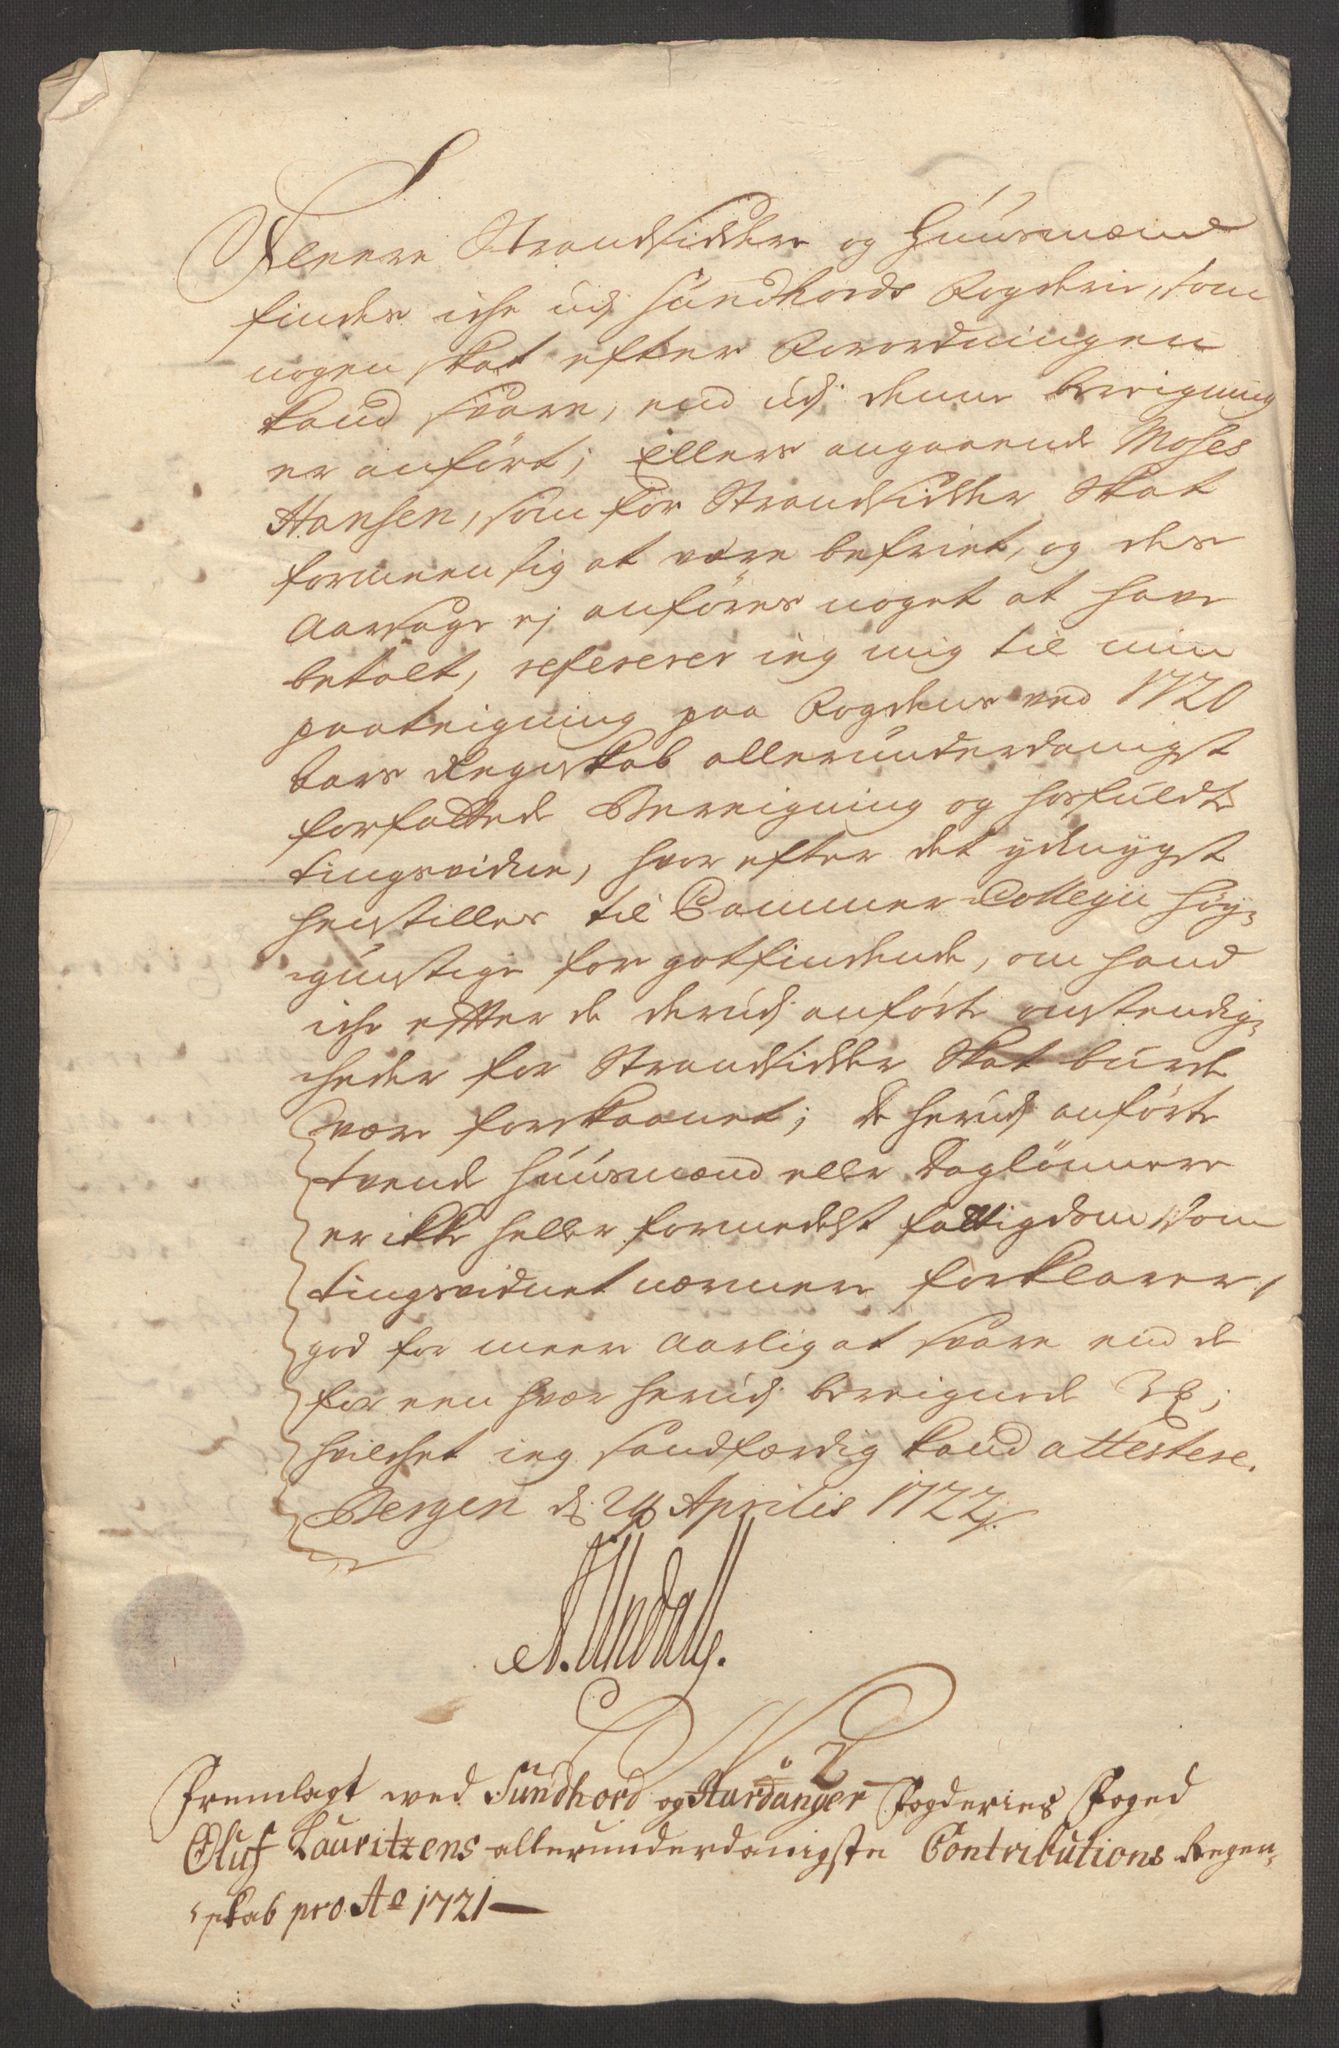 Fleere Strandsiddere og Huusmænd
findes iche udj Sundhords Fogderie, som
nogen skat efter Forordningen
kand svare, end udj denne bereigning
er anført; Ellers angaaende Moses
Hansen, som for Strandsidder Skat
formeen sig at være befriet, og des
Aarsage ej anføres noget at have
betalt, refererer ieg mig til min
paateigning paa Fogdens ved 1720
Aars Regnskab allerunderdanigst
forfattede Bereigning og hosfuldte
tingsvidne, hvor efter det ydmygst
henstilles til Cammer Collegii høy-
gunstige for gotfindende, om hand
iche efter de derudj anførte omstendig-
heder for Strandsidder Skat burde
være forskaanet; de herudj anførte
tvende Huusmænd eller Daglønnere
er ikke heller formedelst fattigdom som
tingsvidnet nærmere forklarer,
god for meer Aarlig at svare end de
for een hvær herudj bereignede ;
hvilchet ieg sandfærdig kand attestere.
Bergen d: Aprilis 1722.
A. Undall.
No 2
Fremlagt wed Sundhord og Hardanger Fogderies Foged
Oluf Lauritzens allerunderdanigste Contributions Regen-
skab pro Ao 1721